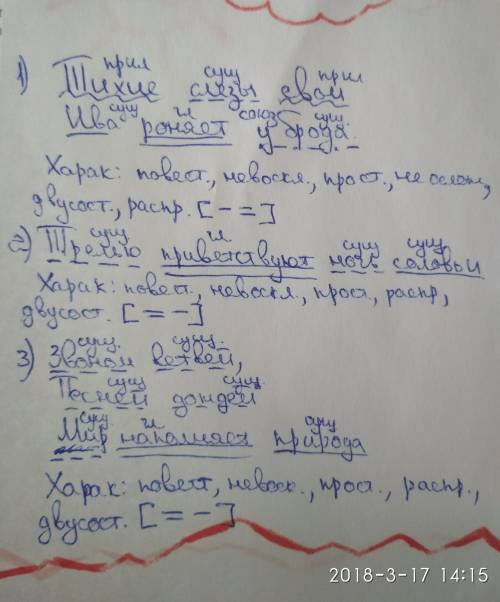 прил сущ прил
1) Тихие слезы свои
сущ гл союз сущ.
Ива роняет у брода.
Харак: повест., невоскл., прост., не ослож.,
двусост., распр. [ - = ]
сущ гл сущ сущ
2) Трелью приветствуют ночь соловьи
Харак: повест., невоскл., прост., распр,
двусост. [ = - ]
сущ. сущ.
3) Звоном ветвей,
сущ сущ.
Песней дождей
сущ гл сущ
Мир наполняет природа
Харак: повест, невоск., прост., распр.,
двусост. [ = - ]
2018-3-17 14:15